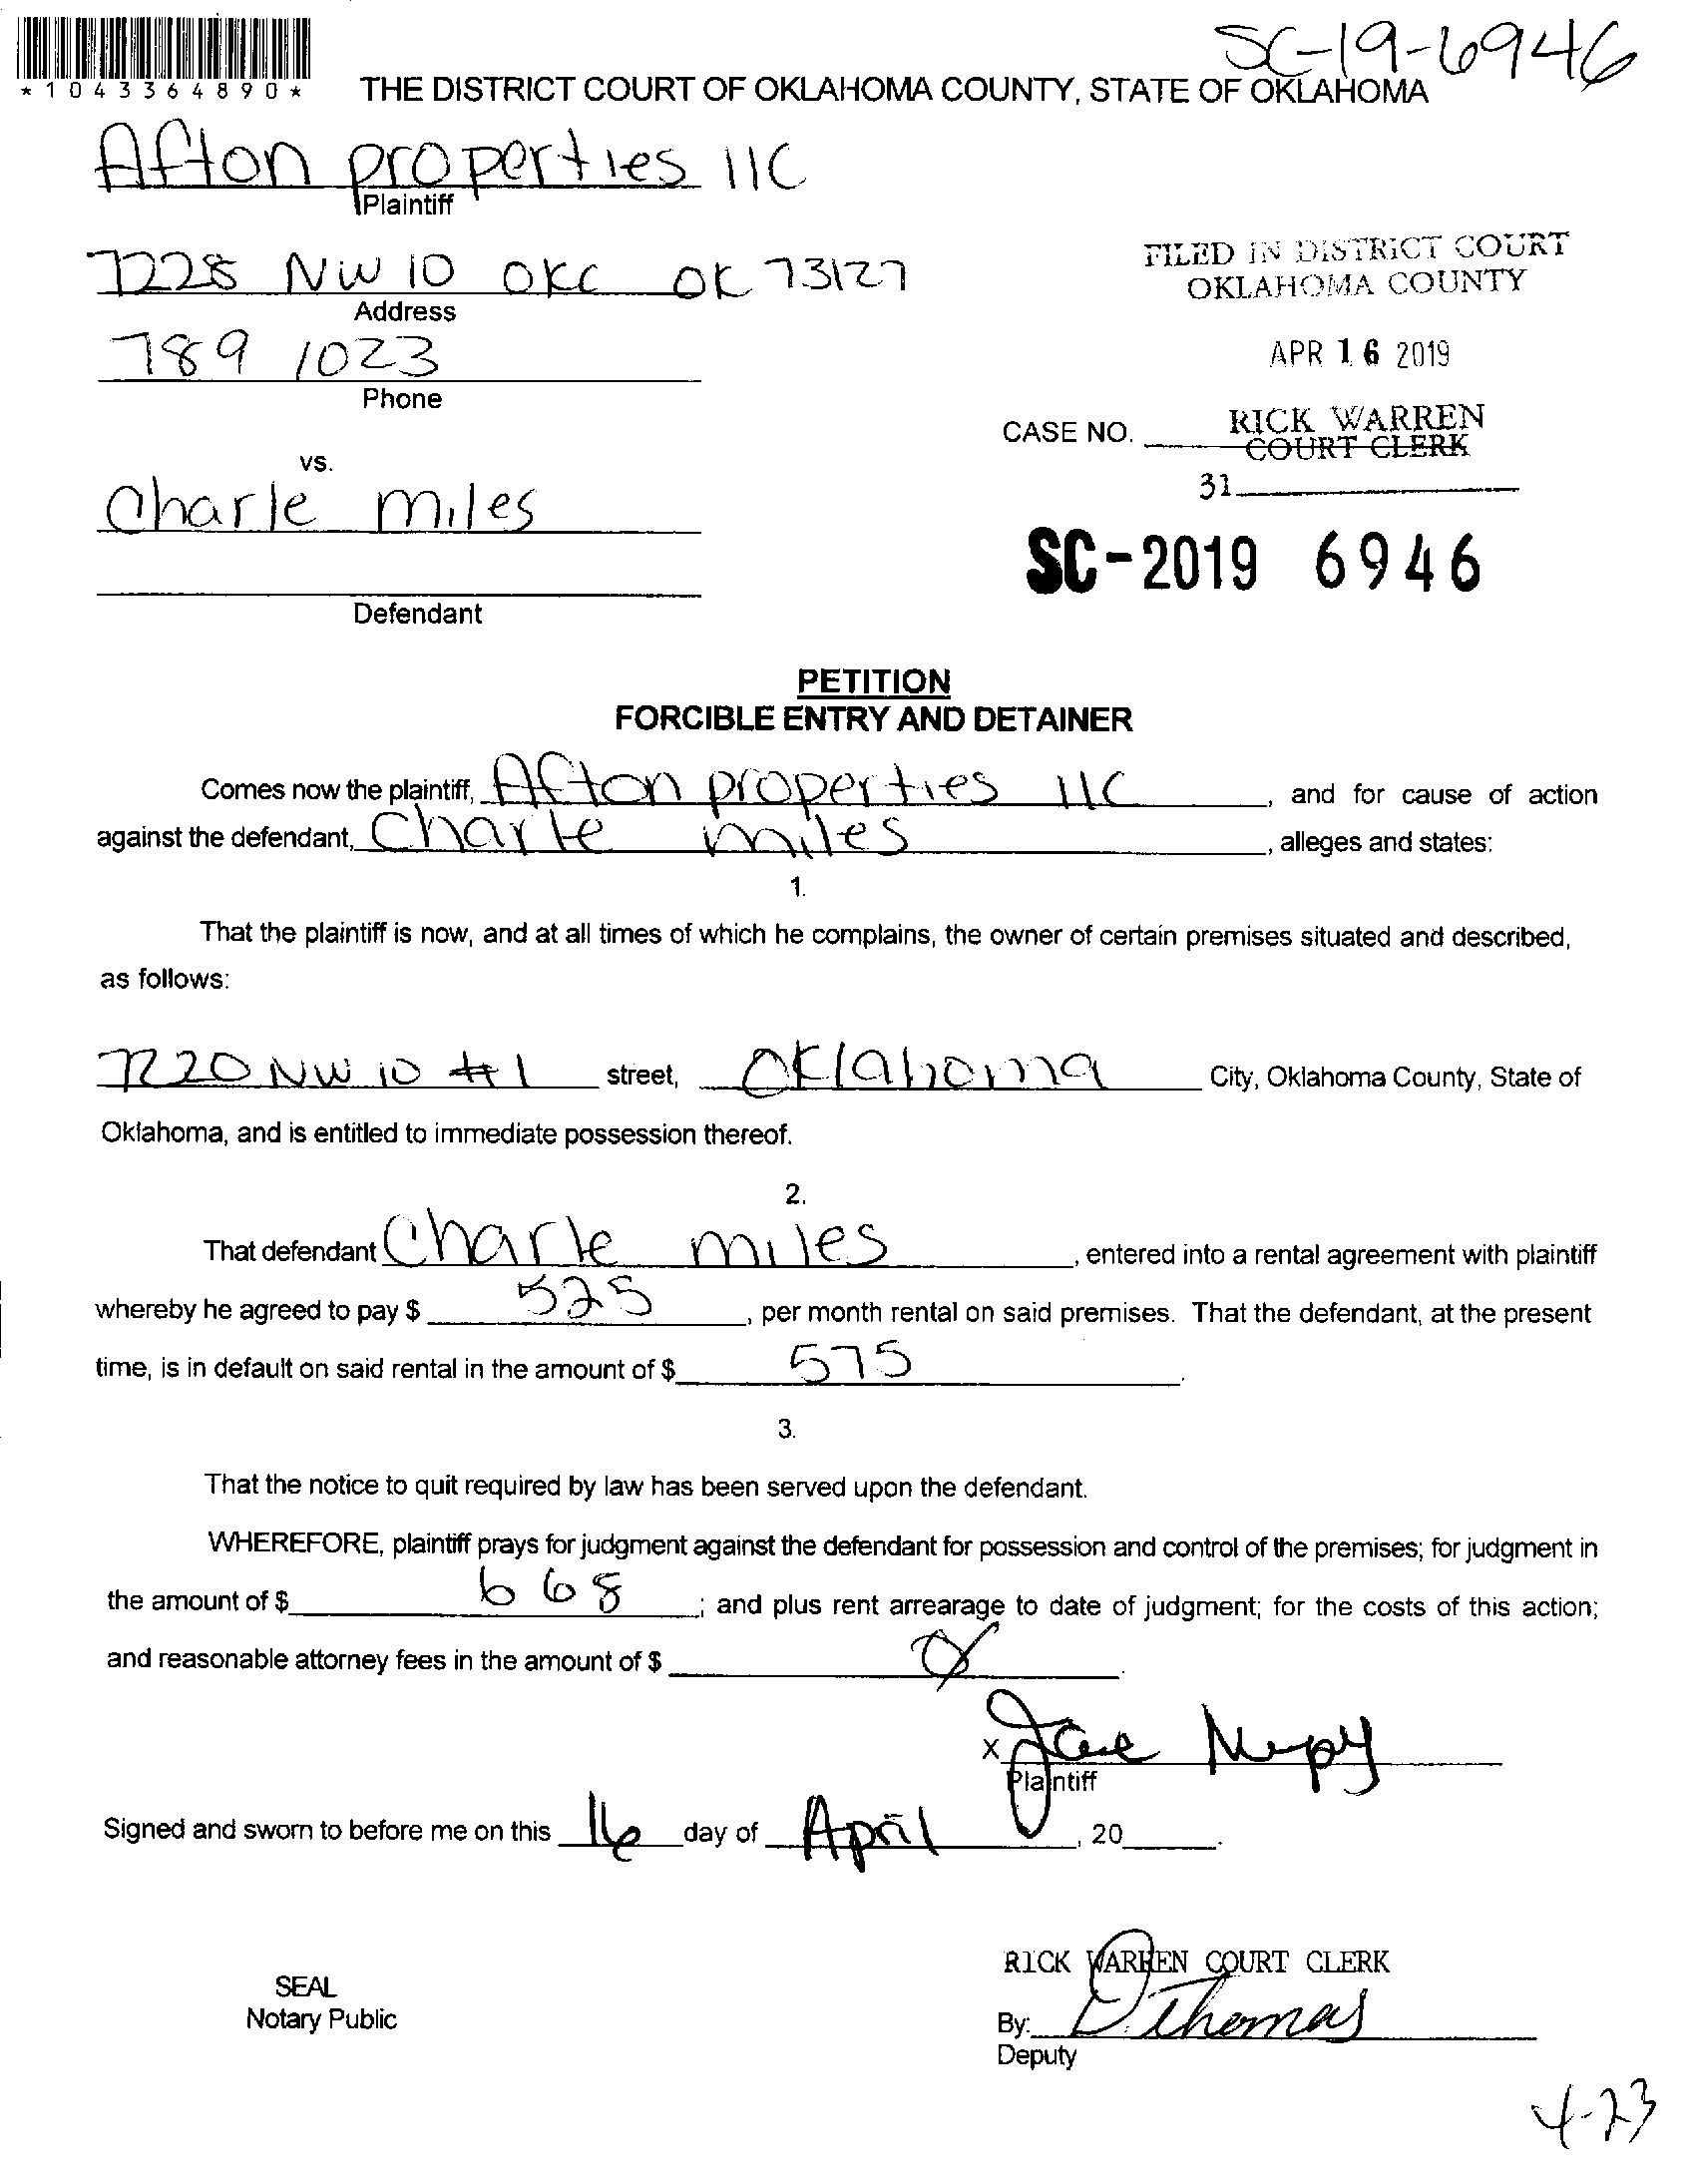 SC-19-6946
*1043364890*
THE DISTRICT COURT OF OKLAHOMA COUNTY, STATE OF OKLAHOMA
Afton properties llC
Plaintiff
7228 NW 10 OKC OK 73127
Address
FILED IN DISTRICT COURT
OKLAHOMA COUNTY
789 1023
Phone
APR 16 2019
CASE NO.
RICK WARREN
COURT CLERK
vs.
31
Charle miles
SC-2019 6946
Defendant
PETITION
FORCIBLE ENTRY AND DETAINER
Comes now the plaintiff, Afton properties llC, and for cause of action
against the defendant, Charle miles, alleges and states:
1.
That the plaintiff is now, and at all times of which he complains, the owner of certain premises situated and described,
as follows:
7220 NW 10 #1 street, Oklahoma City, Oklahoma County, State of
Oklahoma, and is entitled to immediate possession thereof.
2.
That defendant Charle miles, entered into a rental agreement with plaintiff
whereby he agreed to pay $ 525, per month rental on said premises. That the defendant, at the present
time, is in default on said rental in the amount of $ 575.
3.
That the notice to quit required by law has been served upon the defendant.
WHEREFORE, plaintiff prays for judgment against the defendant for possession and control of the premises; for judgment in
the amount of $ 668; and plus rent arrearage to date of judgment; for the costs of this action;
and reasonable attorney fees in the amount of $ Ø.
x
Plaintiff
Signed and sworn to before me on this 16 day of April, 20.
RICK WARREN COURT CLERK
SEAL
Notary Public
By: D. Thomas
Deputy
4-23